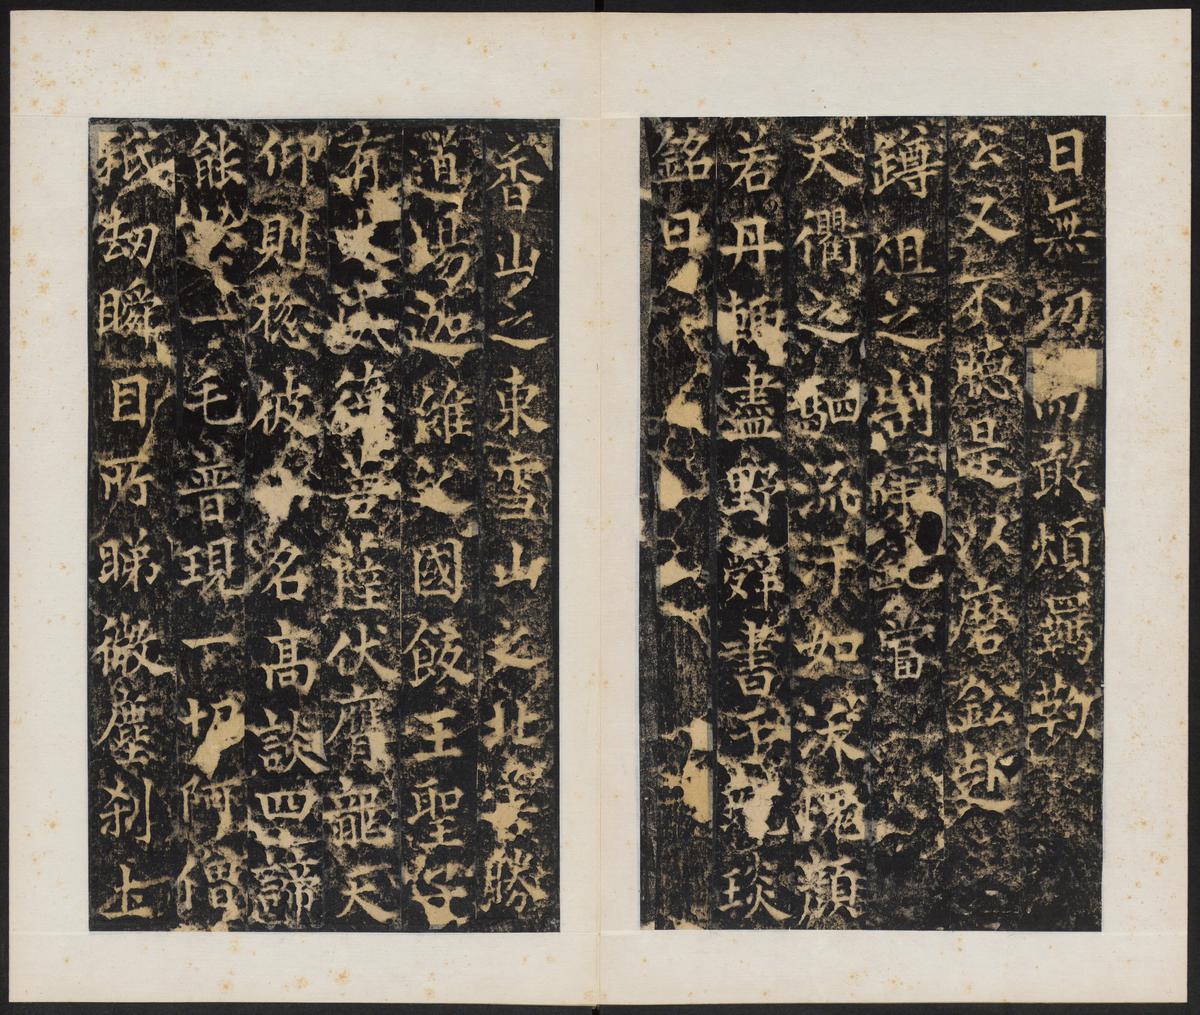 日無功而敢煩羈勒
公又不聽是以磨鈆赴
罇俎之制俾此當
天衢之駟流汗如深愧顏
若丹輒盡野辭書琬琰
銘曰
香山之東雪山之北最勝
道場迦維父國飯王聖子
有大伏膺龍天
仰則揔彼名高談四諦
能於一毛普現一切阿僧
祇劫瞬目所睇微塵剎土